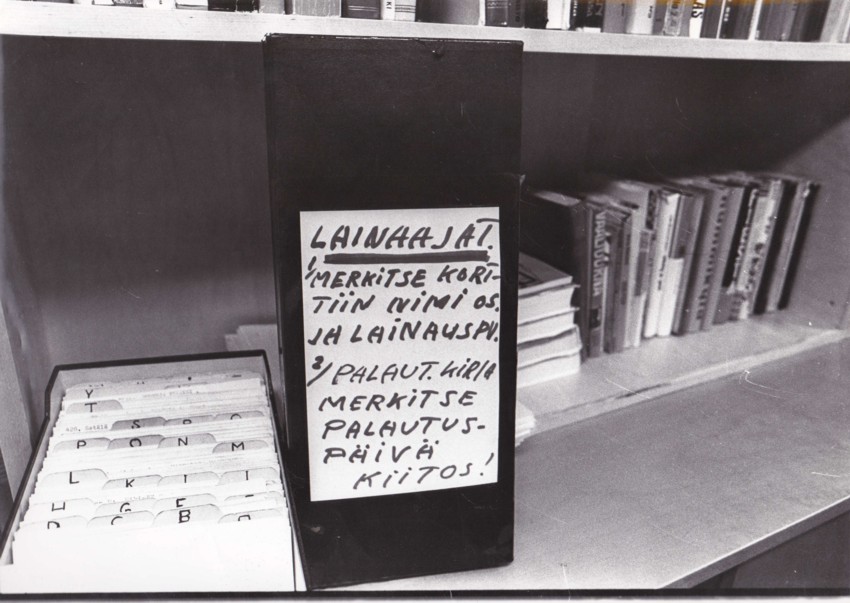 LAINAAJAT.
1/ MERKITSE KORT-
TIIN NIMI OS.
JA LAINAUSPV.
2/ PALAUT. KIRJA
MERKITSE
PALAUTUS-
PÄIVÄ
KIITOS!
Y
T
S R O
P O N M
L K I I
H G E
D C B